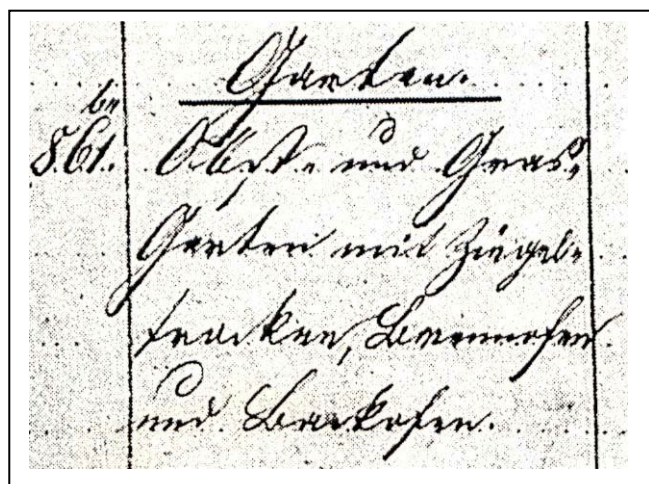 Garten.
861.
Obst- und Gras-
Garten mit Ziegel-
trocken, Brennofen
und Backofen.